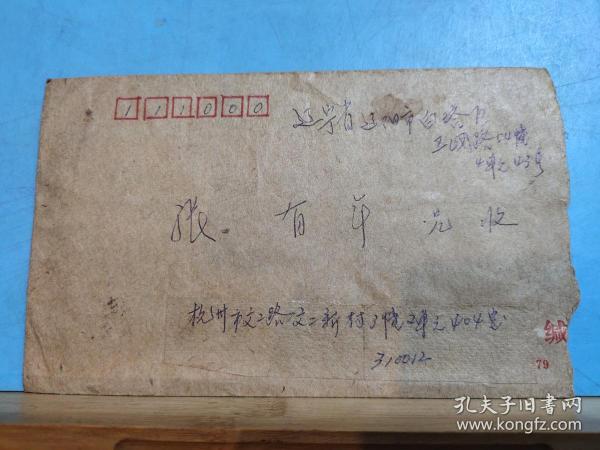 111000
辽宁省辽阳市白塔区
卫国路54幢
4单元43号
张有年兄收
杭州市文二路文二新村3幢2单元404室
310012
缄
79
孔夫子旧书网
www.kongfz.com